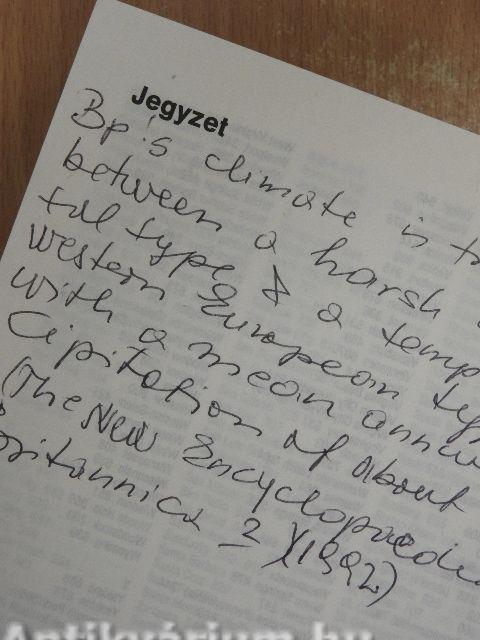 Jegyzet
Bp.'s climate is tr
between a harsh
tal type & a temp
western European ty
with a mean annu
cipitation of about
(The New Encyclopaedi
Britannica 2 (1992)
Antikvárium.hu